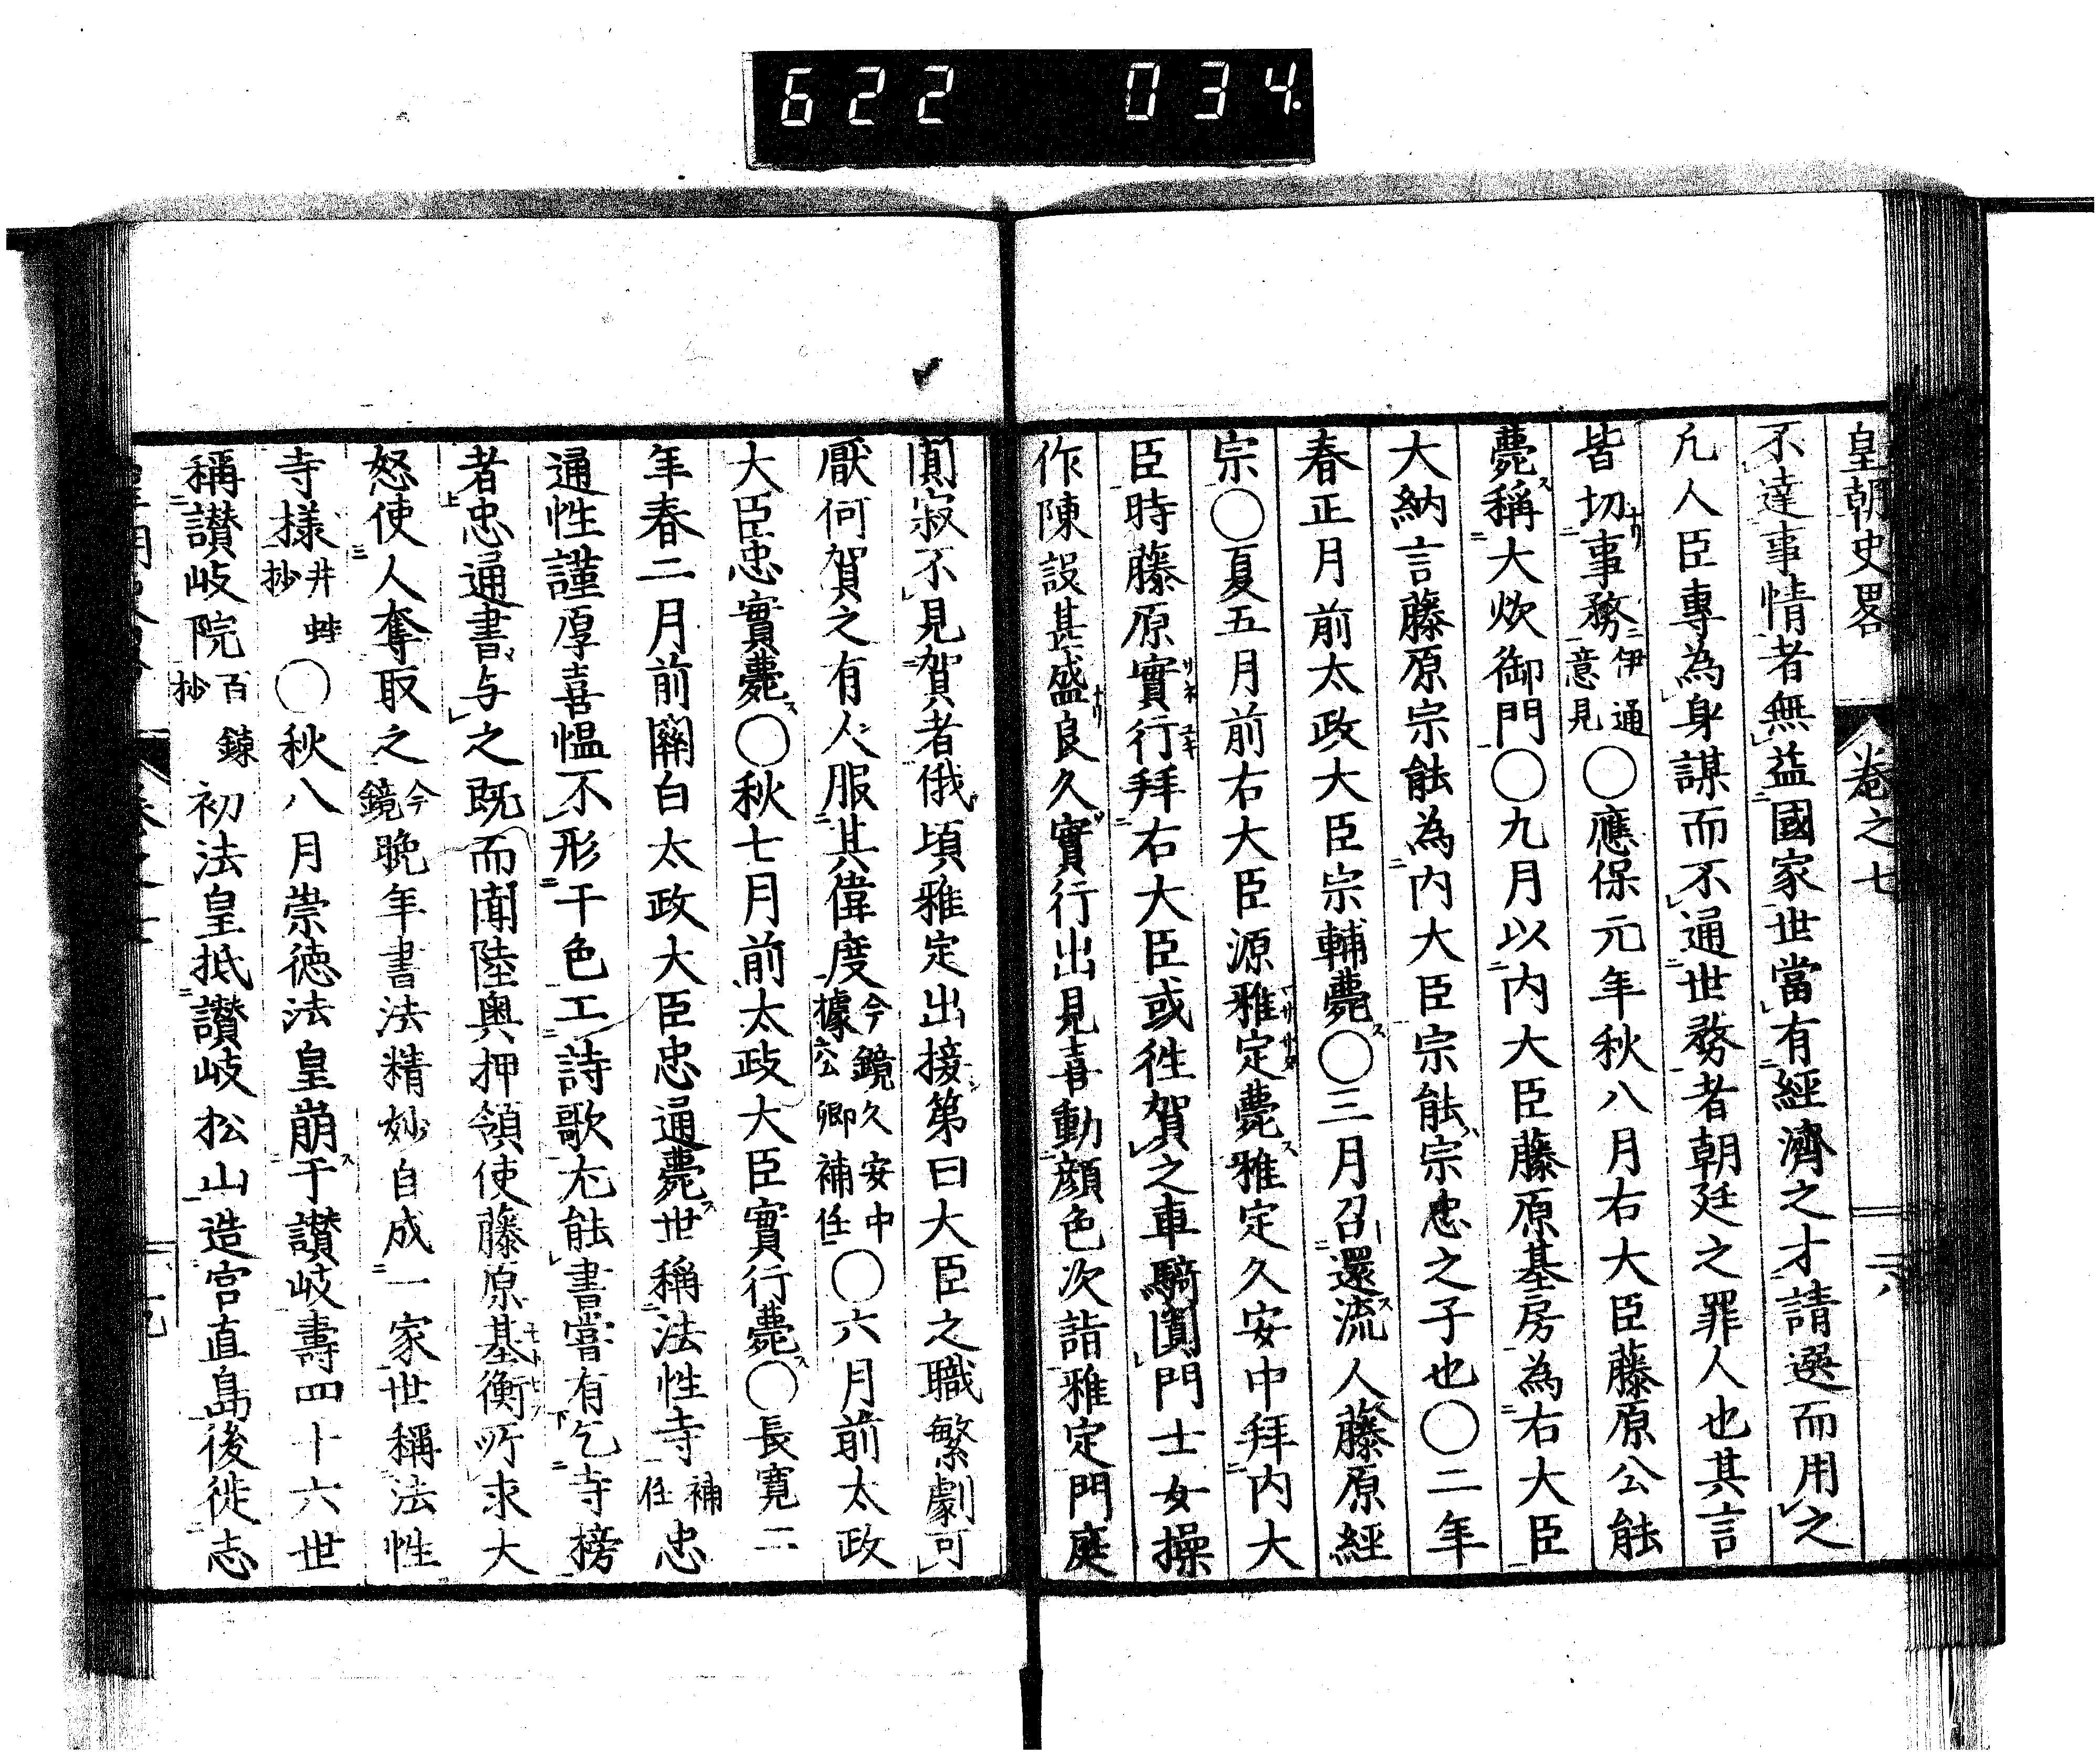 622 034.
皇朝史畧 卷之七 十八
不達事情者無益國家世當有經濟之才請選而用之
凡人臣專為身謀而不通世務者朝廷之罪人也其言
皆切事務伊通意見〇應保元年秋八月右大臣藤原公能
薨稱大炊御門〇九月以内大臣藤原基房為右大臣
大納言藤原宗能為内大臣宗能宗忠之子也〇二年
春正月前太政大臣宗輔薨〇三月召還流人藤原經
宗〇夏五月前右大臣源雅定薨雅定久安中拜内大
臣時藤原實行拜右大臣或徃賀之車騎闐門士女操
作陳設甚盛良久實行出見喜動顔色次詣雅定門庭
闃寂不見賀者俄頃雅定出接第曰大臣之職繁劇可
厭何賀之有人服其偉度今鏡久安中據公卿補任〇六月前太政
大臣忠實薨〇秋七月前太政大臣實行薨〇長寛二
年春二月前關白太政大臣忠通薨世稱法性寺補任忠
通性謹厚喜愠不形干色工詩歌尤能書嘗有乞寺榜
者忠通書与之既而聞陸奥押領使藤原基衡所求大
怒使人奪取之今鏡晩年書法精妙自成一家世稱法性
寺様井蛙抄〇秋八月崇徳法皇崩于讃岐壽四十六世
稱讃岐院百錬抄初法皇抵讃岐松山造宮直島後徙志